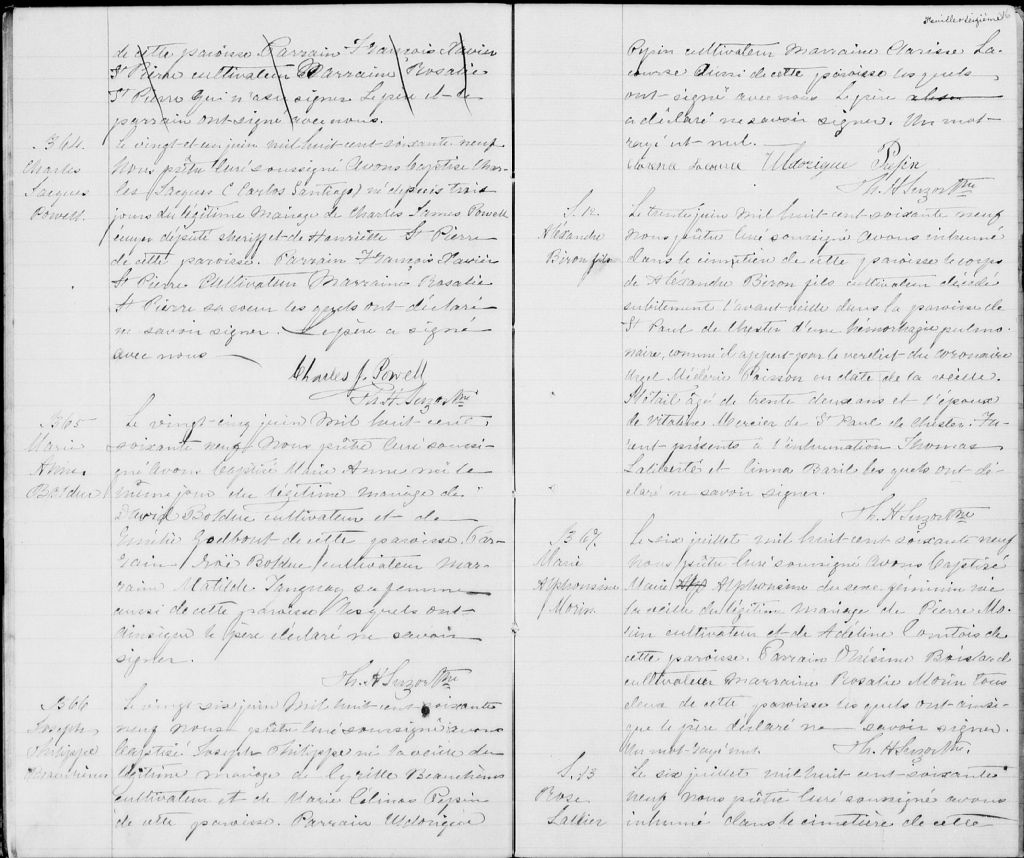 de cette paroisse Parrain François Xavier
St Pierre cultivateur Marraine Rosalie
St Pierre qui n'a su signer Le père et le
parrain ont signé avec nous.
B 64.
Charles
Jacques
Powell.
Le vingt et un juin mil huit cent soixante neuf
Nous prêtre curé soussigné avons baptisé Char-
les Jacques (Carlos Santiago) né depuis trois
jours du légitime mariage de Charles James Powell
écuier député sheriff et de Henriette St Pierre
de cette paroisse. Parrain François Xavier
St Pierre Cultivateur Marraine Rosalie
St Pierre sa soeur les quels ont déclaré
ne savoir signer. Le père a signé
avec nous
Charles J. Powell
Th. H. Suzor Ptre
B 65
Marie
Anne
Bolduc
Le vingt cinq juin mil huit cent
soixante neuf nous prêtre curé soussi-
gné avons baptisé Marie Anne née le
même jour du légitime mariage de
David Bolduc cultivateur et de
Emilie Godbout de cette paroisse. Par-
rain Bolduc cultivateur Mar-
raine Matilde Tanguay sa femme
aussi de cette paroisse lesquels ont
ainsi que le père déclaré ne savoir
signer.
Th. H Suzor Ptre
B 66
Joseph
Philippe
Beauchêne
Le vingt six juin mil huit cent soixante
neuf nous prêtre curé soussigné avons
baptisé Joseph Philippe né la veille du
légitime mariage de Cyrille Beauchêne
cultivateur et de Marie Celinas Pepin
de cette paroisse. Parrain Uldorique
Feuillet seizième 16
Pepin cultivateur Marraine Clarisse La-
course aussi de cette paroisse les quels
ont signé avec nous Le père
a déclaré ne savoir signer. Un mot
rayé est nul.
Lacourse Uldorique Pepin
Th. H Suzor Ptre
S. 12
Alexandre
Biron fils
Le trente juin mil huit cent soixante neuf
nous prêtre curé soussigné avons inhumé
dans le cimetière de cette paroisse le corps
de Alexandre Biron fils cultivateur décédé
subitement l'avant veille dans la paroisse de
St Paul de Chester d'une hémorhagie pulmo-
naire, comme il appert par le verdict du coronaire
Urgel Médéric Poisson en date de la veille.
Il était âgé de trente deux ans et l'époux
de Vitaline Mercier de St Paul de Chester. Fu-
rent présents à l'inhumation Thomas
Laliberté et Cinna Baril les quels ont dé-
claré ne savoir signer.
Th. H Suzor Ptre
B 67.
Marie
Alphonsine
Morin
Le six juillet mil huit cent soixante neuf
Nous prêtre curé soussigné avons baptisé
Marie Alp Alphonsine du sexe féminin née
la veille du légitime mariage de Pierre Mo-
rin cultivateur et de Adéline Comtois de
cette paroisse. Parrain Onésime Boislard
cultivateur Marraine Rosalie Morin tous
deux de cette paroisse les quels ont ainsi
que le père déclaré ne savoir signer.
Un mot rayé nul. Th. H Suzor Ptre.
S. 13
Rose
Lallier
Le six juillet mil huit cent soixante
neuf nous prêtre curé soussigné avons
inhumé dans le cimetière de cette